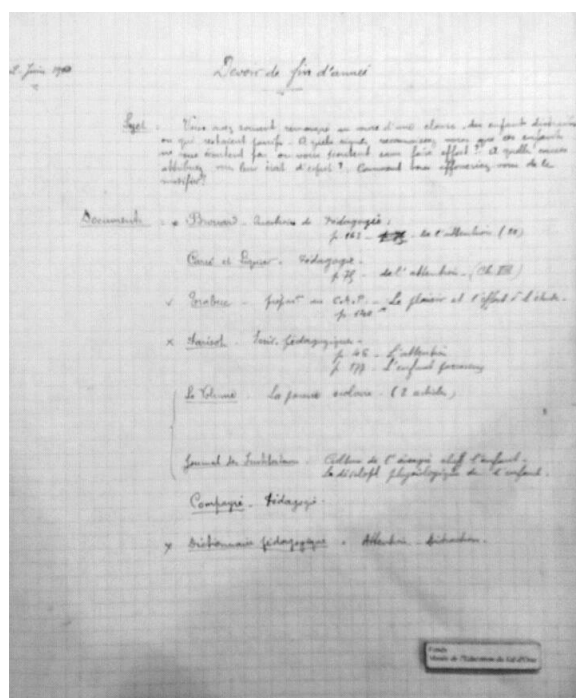 2 Juin
Devoir de fin d'année
Sujet. Vous avez souvent remarqué au cours d'une classe, des enfants distraits
ou qui restaient passifs. A quels signes reconnaissez vous que ces enfants
ne vous écoutent pas ou vous écoutent sans faire effort? A quelles causes
attribuez vous leur état d'esprit? Comment vous efforcerez vous de le
modifier?
Documents. x de Pédagogie.
p. 163 - de l'attention
et Pédagogie.
p. 75 - de l'attention - (Ch. VII)
v au C.A.P. - Le plaisir et l'effort à l'étude.
x pédagogiques.
p. 46 - L'attention
p. 177 - L'enfant paresseux
Le Volume. La paresse scolaire. (2 articles)
Journal des Instituteurs. Culture de l'énergie chez l'enfant.
physiologique de l'enfant.
Compayré. Pédagogie.
x Dictionnaire pédagogique. Attention - Distraction.
Fonds
Musée de l'Education du Val d'Oise